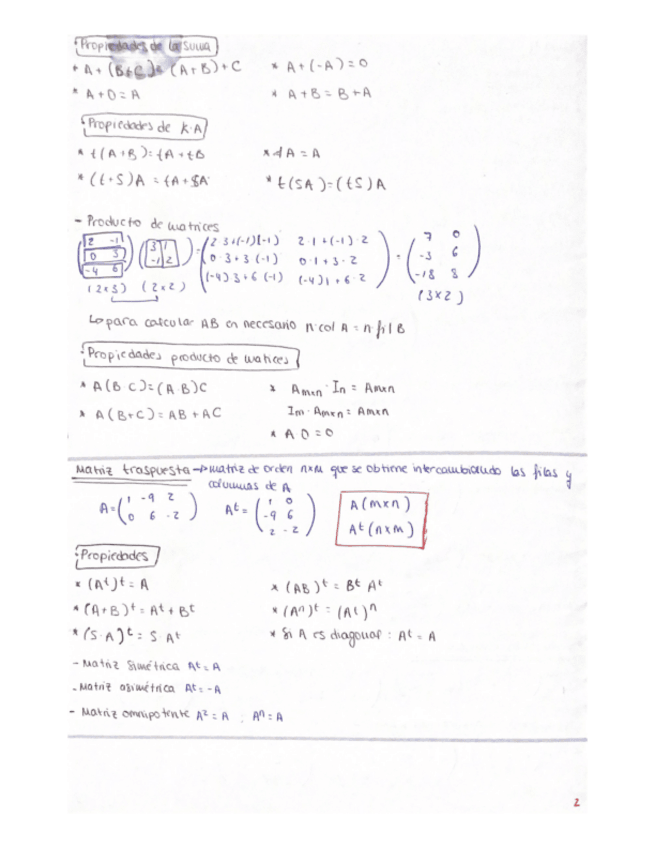 Propiedades de la suma
* A + (B+C) = (A+B) + C * A + (-A) = 0
* A + 0 = A * A + B = B + A
Propiedades de k·A
* t(A+B) = tA + tB * 1A = A
* (t+S)A = tA + SA * t(SA) = (tS)A
- Producto de matrices
2 -1 3 1 2·3+(-1)(-1) 2·1+(-1)·2 7 0
0 3 -1 2 0·3+3(-1) 0·1+3·2 = -3 6
-4 6 (-4)3+6(-1) (-4)1+6·2 -18 8
(2x3) (2x2) (3x2)
↳ para calcular AB en necesario nºcol A = nºfil B
Propiedades producto de matices
* A(B C) = (A·B)C * Amxn · In = Amxn
* A(B+C) = AB + AC Im · Amxn = Amxn
* A 0 = 0
Matriz traspuesta → matriz de orden nxm que se obtiene intercambiando las filas y
columnas de A
A = (1 -9 2 At = (1 0 A(mxn)
0 6 -2) -9 6 At(nxm)
2 -2)
Propiedades
* (At)t = A * (AB)t = Bt At
* (A+B)t = At + Bt * (An)t = (At)n
* (S·A)t = S·At * Si A es diagonal: At = A
- Matriz simétrica At = A
- Matriz asimétrica At = -A
- Matriz omnipotente A² = A : An = A
2